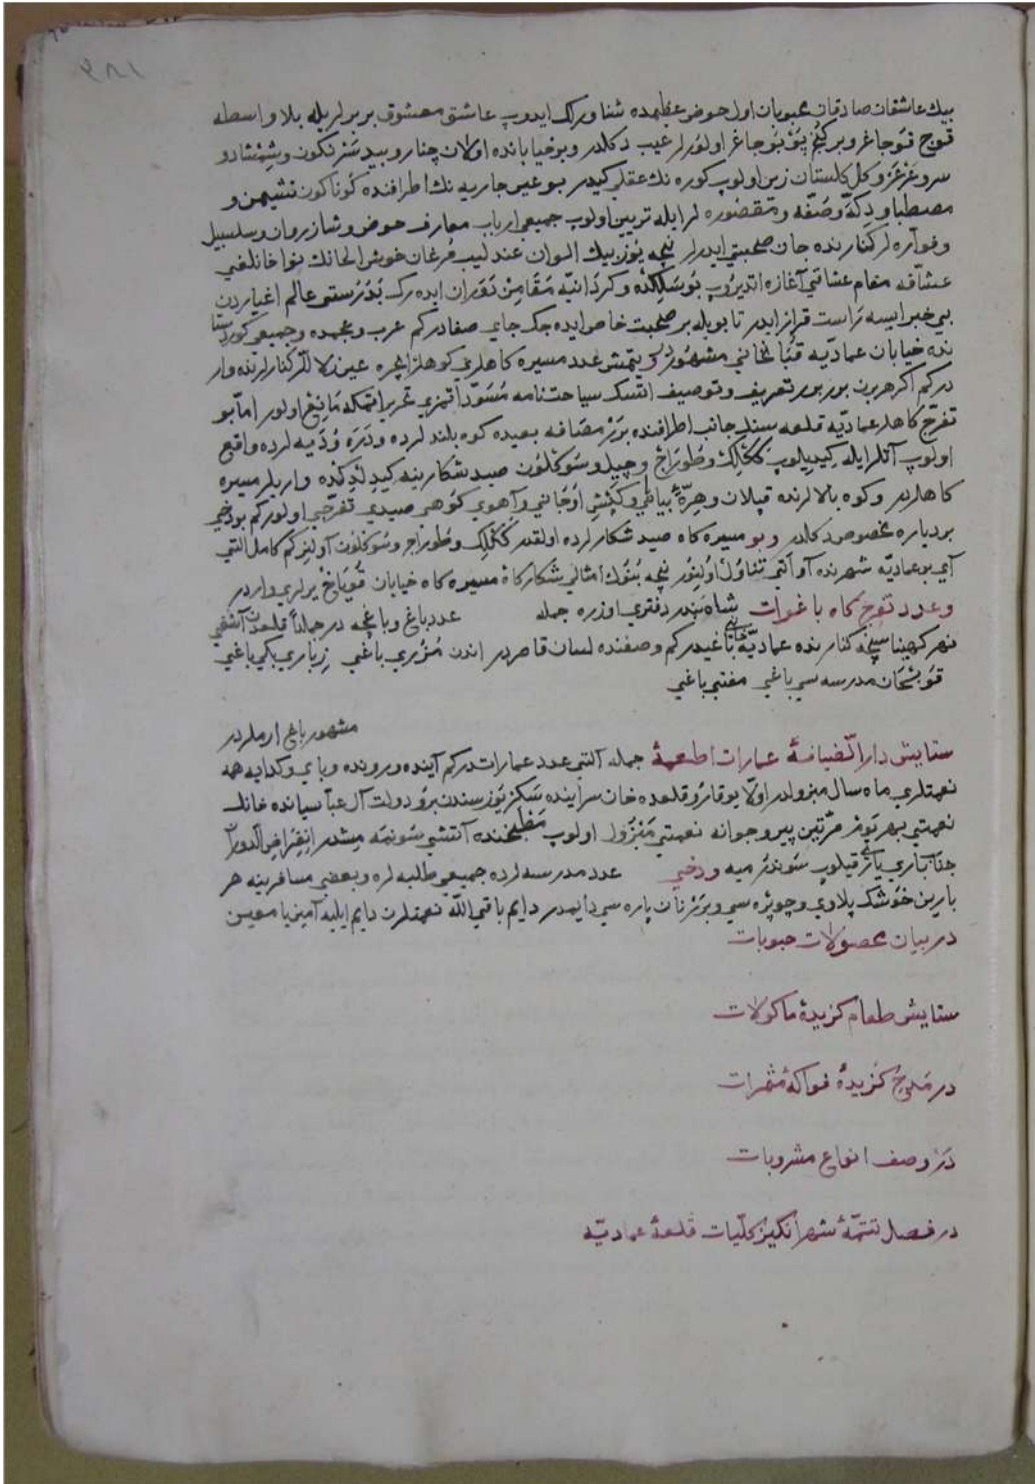 بيك عاشقان صادقان محبوبان اول حوض عظيمده شناورلك ايدوب عاشق معشوق بربرلريله بلا واسطه
قوچ قوجاغ وبر كنج بوجاغ اولورلر عيب دكلدر وبو خياباننده اولان چنار وبيد سرنكون وشمشاد و
سرو عرعر وكل كلستان زين اولوب كوره نك عقلى كيدر بو عين جاريه نك اطرافنده كوناكون نشيمن و
مصطبا ودكه وصفه ومقصوره لر ايله تزيين اولوب جميع ارباب معارف حوض وشازروان وسلسبيل
وفواره لر كنارنده جان صحبتى ايدرلر نيچه يوز بيك الوان عندليب مرغان خوش الحانك نوا خانلغى
عشاقه مقام عشاقى آغازه ايتديروب بوسلكده وكردانيه مقامن دوران ايده رك بزرستى عالم اغياردن
بى خبر ايسه راست قرار ايدر تا بويله بر صحبت خاص ايده جك جاى صفادر كم عرب وعجمده وجميع كوردستا
نده خيابان عماديه قباد خانى مشهوردر يتمش عدد مسيره كاهلرى كوهلر ايچره عين زلاللر كنارلرنده وار
در كم اكر هربرن برر برر تعريف وتوصيف اتسك سياحتنامه مسوداتمزى تحرير اتمكه مانع اولور اما بو
تفرج كاهلر عماديه قلعه سنك جانب اطرافنده برر مسافه بعيده كوه بلندلرده ودره ودپه لرده واقع
اولوب آتلر ايله كيديلوب ككلك وطوراج وچيل وسوكلون صيد شكارينه كيدلدكده واريلر مسيره
كاهلردر وكوه بالالرنده قپلان وهره بيابانى وكپش اوجانى وآهوى كوهى صيدى تفرجى اولور كم بو دخى
بر دياره مخصوص دكلدر وبو مسيره كاه صيد شكارلرده اولقدر ككلك وطوراج وسوكلون آولنر كم كامل التى
آى بو عماديه شهرنده آو اتى تناول اولنور نيچه بونوك امثالى شكاركاه مسيره كاه خيابان قوياغ يرلرى واردر
وعدد تفرج كاه باغوات شاه بندر دفترى اوزره جمله عدد باغ وباغچه در جمله قلعه نك آشغى
نهر كهيناسى كنارنده عماديه خانى باغيدر كم وصفنده لسان قاصردر اندن مزورى باغى زيبارى بكى باغى
قوبخان مدرسه سى باغى مفتى باغى
مشهور باغ ارملردر
ستايش دار الضيافهٔ عمارات اطعمهٔ جمله التى عدد عماراتدر كم آينده ورونده وباى وكدايه همه
نعمتلرى ماه سال مبذولدر اولا يوقارو قلعه ده خان سراينده سكز يوز سنه دن برو دولت آل عباسيانده خانك
نعمتى بهر يوم مرتين پير وجوانه نعمتى مبذول اولوب مطبخنده آتشى سونمه مشدر انقراض الدوران
جناب بارى باقى قيلوب سوندرميه ودخى عدد مدرسه لرده جميع طلبه لره وبعض مسافرينه هر
بارين خوشك پلاوى وچوبره سى وبرر نان پاره سى دايمدر دايم باقى الله نعمتلرن دايم ايليه آمين يا معين
در بيان محصولات حبوبات
ستايش طعام كزيدهٔ ماكولات
در مدح كزيدهٔ فواكهٔ مثمرات
در وصف انواع مشروبات
در فصل تتمهٔ شهر انكيز كليات قلعهٔ عماديه